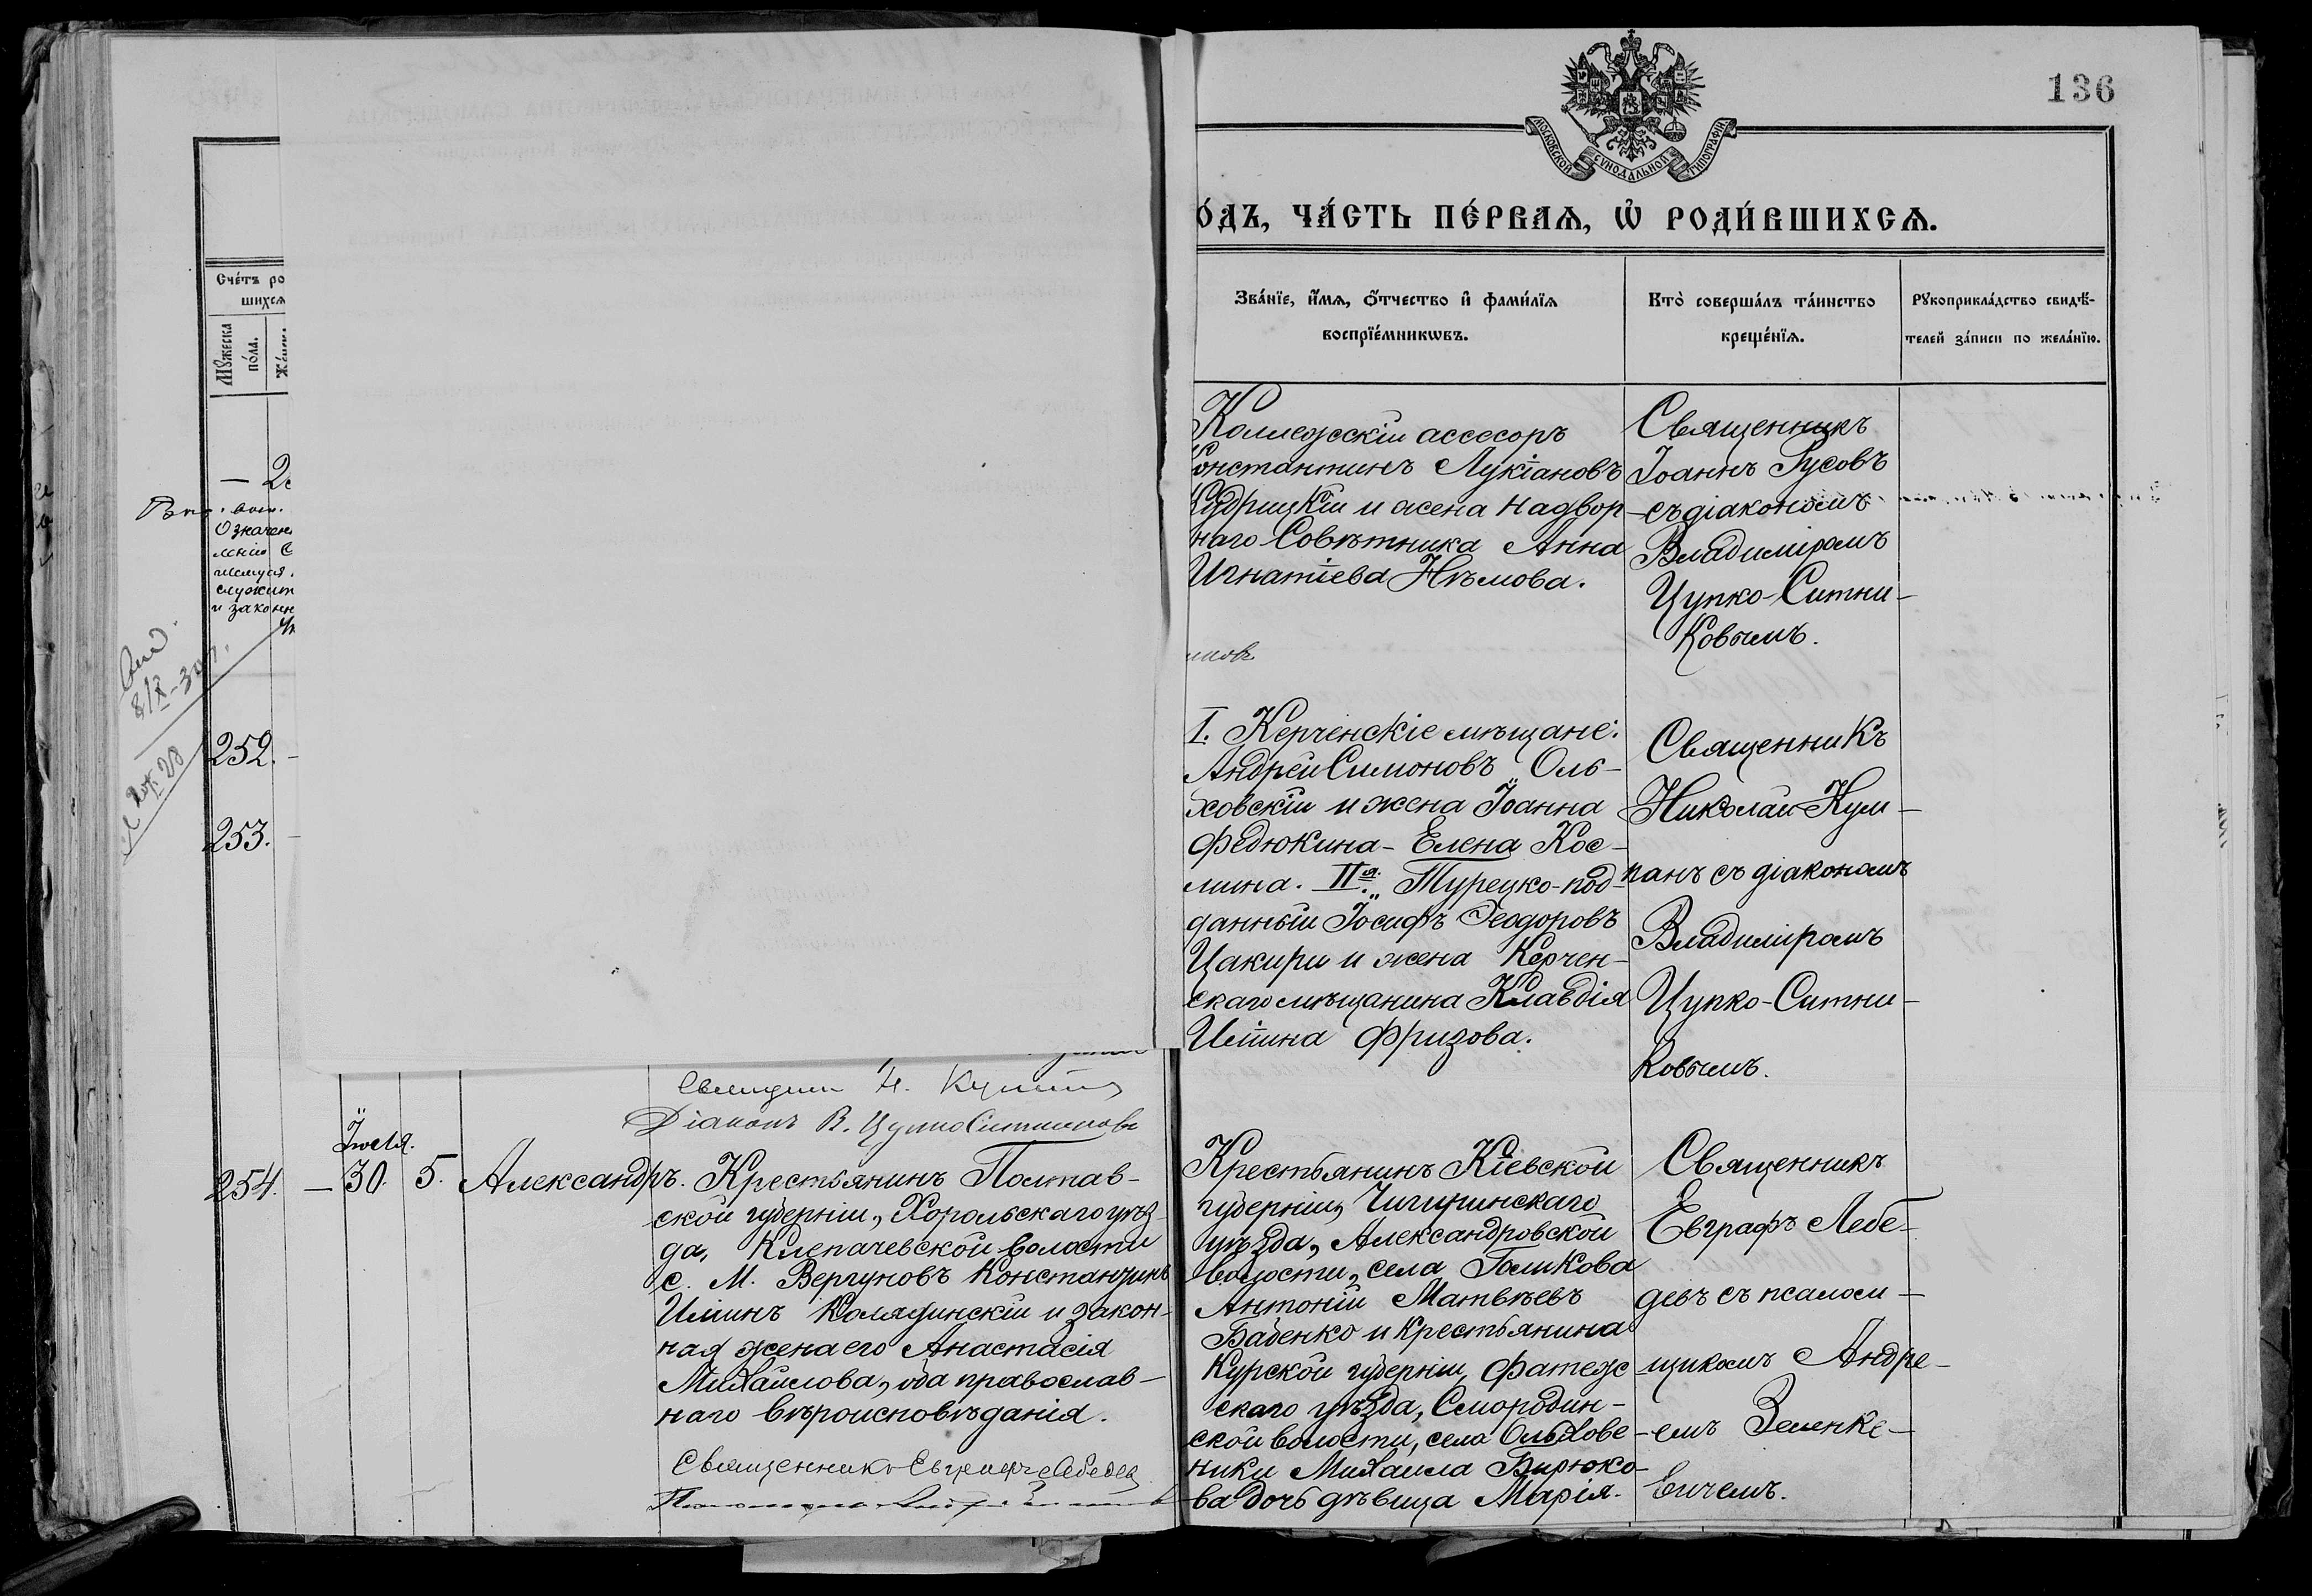 136
МОСКОВСКОЙ СѴНОДАЛЬНОЙ ТИПОГРАФІИ
О́ДЪ, ЧА́СТЬ ПЕ́РВАѦ, Ѡ҆ РОДИ́ВШИХСѦ.
Сче́тъ ро
шихсѧ
Мꙋжеска
по́ла.
Же́нс
Зва́нїе, и҆́мѧ, ѻ҆́тчество и҆ фами́лїѧ
воспрїе́мникѡвъ.
Кто̀ соверша́лъ та́инство
креще́нїѧ.
Рꙋкоприкла́дство свидѣ́-
телей за́писи по жела́нїю.
Означен
и законн
252.
253.
Коллежскій ассесоръ
Константинъ Лукіановъ
Кудрицкій и жена Надвор
наго Совѣтника Анна
Игнатіева Нѣмова.
Священникъ
Іоаннъ Гусовъ
съ діакономъ
Владиміромъ
Цупко-Ситни-
ковымъ.
иковъ
I. Керченскіе мѣщане:
Андрей Симоновъ Оль-
ховскій и жена Іоанна
Федюкина - Елена Кос-
мина. IIя. Турецко-под-
данный Іосифъ Ѳеодоровъ
Цакири и жена Керчен-
скаго мѣщанина Клавдія
Иліина Фризова.
Священникъ
Николай Кум-
панъ съ діакономъ
Владиміромъ
Цупко-Ситни-
ковымъ.
Н.
Діаконъ В. ЦупкоСитниковъ
Іюля.
254. — 30. 5. Александръ.
Крестьянинъ Полтав-
ской губерніи, Хорольскаго уѣз-
да, Клепачевской волости
с. М. Вергуновъ Константинъ
Иліинъ Колядинскій и закон-
ная жена его Анастасія
Михаилова, оба православ-
наго вѣроисповѣданія.
Священникъ Евграфъ Лебедев
Крестьянинъ Кіевской
губерніи, Чигиринскаго
уѣзда, Александровской
волости, села Голикова
Антоній Матвѣевъ
Баденко и крестьянина
Курской губерніи, Фатеж
скаго уѣзда, Смородин-
ской волости, села Ольхове-
ники Михаила Бирюко-
ва дочь дѣвица Марія.
Священникъ
Евграфъ Лебе-
девъ съ псалом-
щикомъ Андре-
емъ Зеленке-
вичемъ.